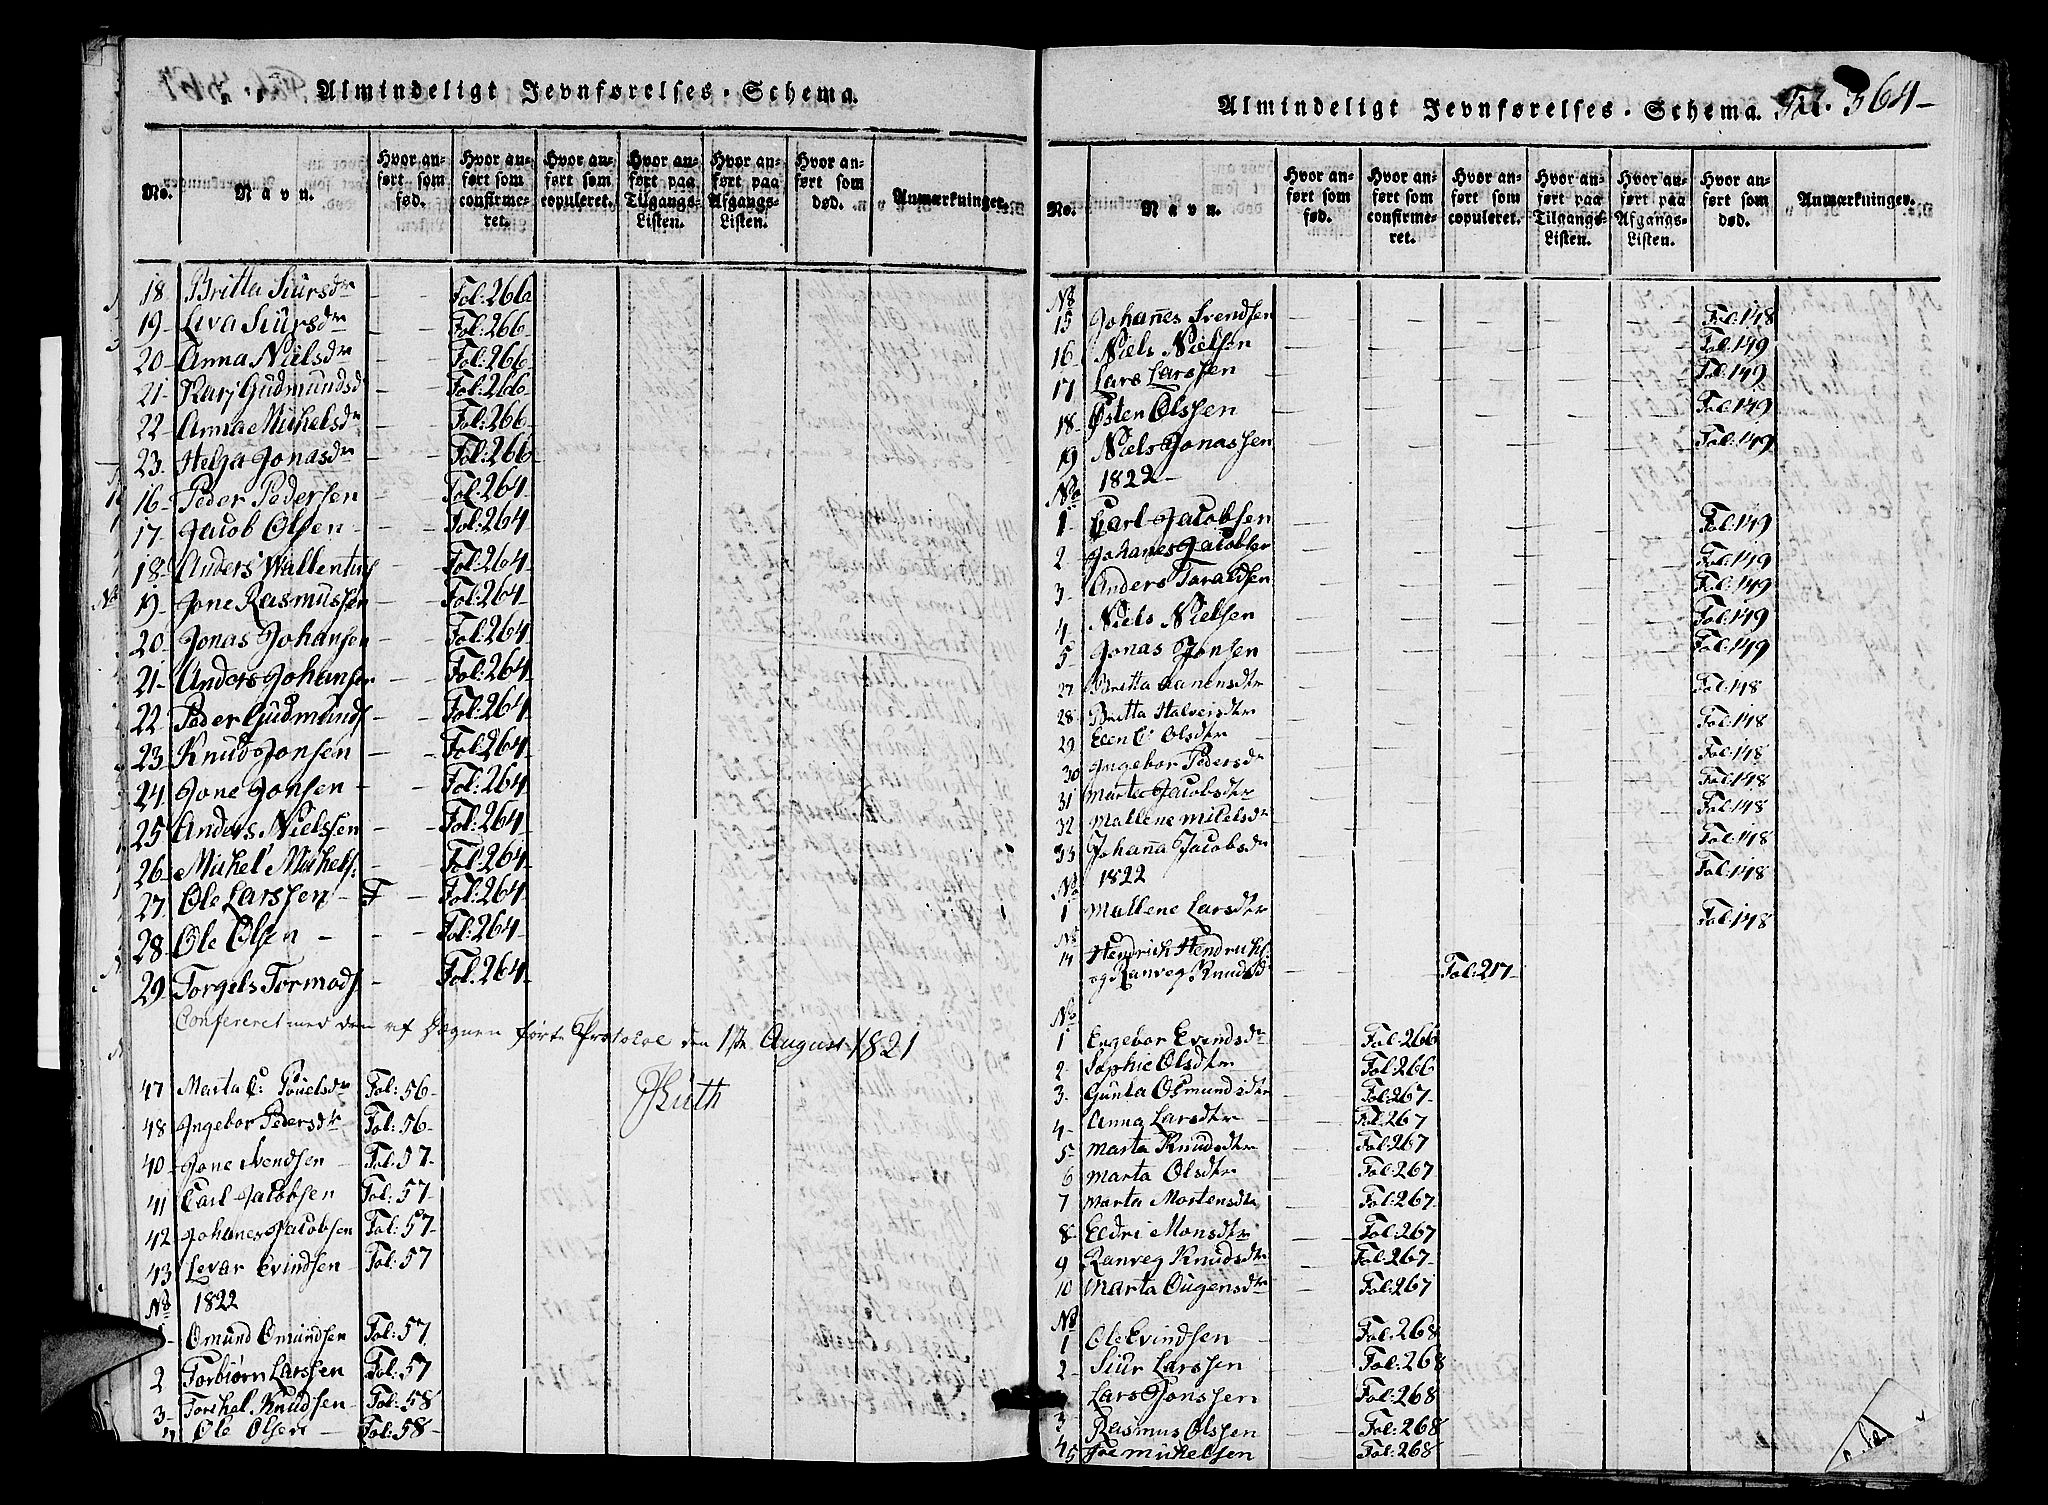 Almindeligt Jevnførelses-Schema.
No. Navn. Hvor anført som fød. Hvor anført som confirmeret. Hvor anført som copuleret. Hvor anført paa Tilgangs-Listen. Hvor anført paa Afgangs-Listen. Hvor anført som død. Anmærkninger.
18 Britta Siursdr Fol:266
19 Siursdr Fol:266
20 Anna Nielsdr Fol:266
21 Karj Gudmundsd Fol:266
22 Anna Mickelsdr Fol:266
23 Helga Jonasdr Fol:266
16 Peder Pedersen Fol:264
17 Jacob Olsen Fol:264
18 Anders Wallentins Fol:264
19 Jone Rasmussen Fol:264
20 Jonas Johansen Fol:264
21 Anders Johansen Fol:264
22 Peder Gudmunds Fol:264
23 Knud Jonsen Fol:264
24 Jone Jonsen Fol:264
25 Anders Nielssen Fol:264
26 Mickel Mickels: Fol:264
27 Ole Larssen Fol:264
28 Ole Olsen Fol:264
29 Torgels Tormods Fol:264
Confereret med den af Sognen førte Protokol den 1ste August 1821
47 Marta C: Pouelsdr Fol:56
48 Ingebor Pedersdr Fol:56
40 Jone Svendsen Fol:57
41 Carl Jacobsen Fol:57
42 Johanes Jacobsen Fol:57
43 Evindsen Fol:57
No 1822
1 Omund Omundsen Fol:57
2 Torbiørn Larssen Fol:57
3 Torkel Knudsen Fol:58
4 Ole Olsen Fol:58
Almindeligt Jevnførelses-Schema. Fol. 364
No. Navn. Hvor anført som fød. Hvor anført som confirmeret. Hvor anført som copuleret. Hvor anført paa Tilgangs-Listen. Hvor anført paa Afgangs-Listen. Hvor anført som død. Anmærkninger.
No
15 Johanes Svendsen Fol:148
16 Niels Nielsen Fol:149
17 Lars Larssen Fol:149
18 Østen Olssen Fol:149
19 Niels Jonassen Fol:149
No 1822
1 Carl Jacobsen Fol:149
2 Johanes Jacobsen Fol:149
3 Anders Taraldsen Fol:149
4 Niels Nielsen Fol:149
5 Jonas Jonsen Fol:149
27 Britta Fol:148
28 Britta Fol:148
29 Elen C: Olsdtr Fol:148
30 Ingebor Pedersdr Fol:148
31 Marte Jacobsdtr Fol:148
32 Mallene Fol:148
33 Johanna Jacobsdr Fol:148
No 1822
1 Mallene Larsdtr Fol:148
No
14 Hendrich Hendrichs:
og Ranveg Knudsd: Fol:217
No
1 Engebor Evindsdr Fol:266
2 Sophie Olsdtr Fol:266
3 Gunla Osmundsdtr Fol:267
4 Anna Larsdtr Fol:267
5 Marta Knudsdtr Fol:267
6 Marta Olsdtr Fol:267
7 Marta Mortensdtr Fol:267
8 Eldri Monsdtr Fol:267
9 Ranveg Knudsdtr Fol:267
10 Marta Fol:267
No
1 Ole Evindsen Fol:268
2 Siur Larssen Fol:268
3 Lars Jonssen Fol:268
4 Rasmus Olssen Fol:268
5 Mickelsen Fol:268